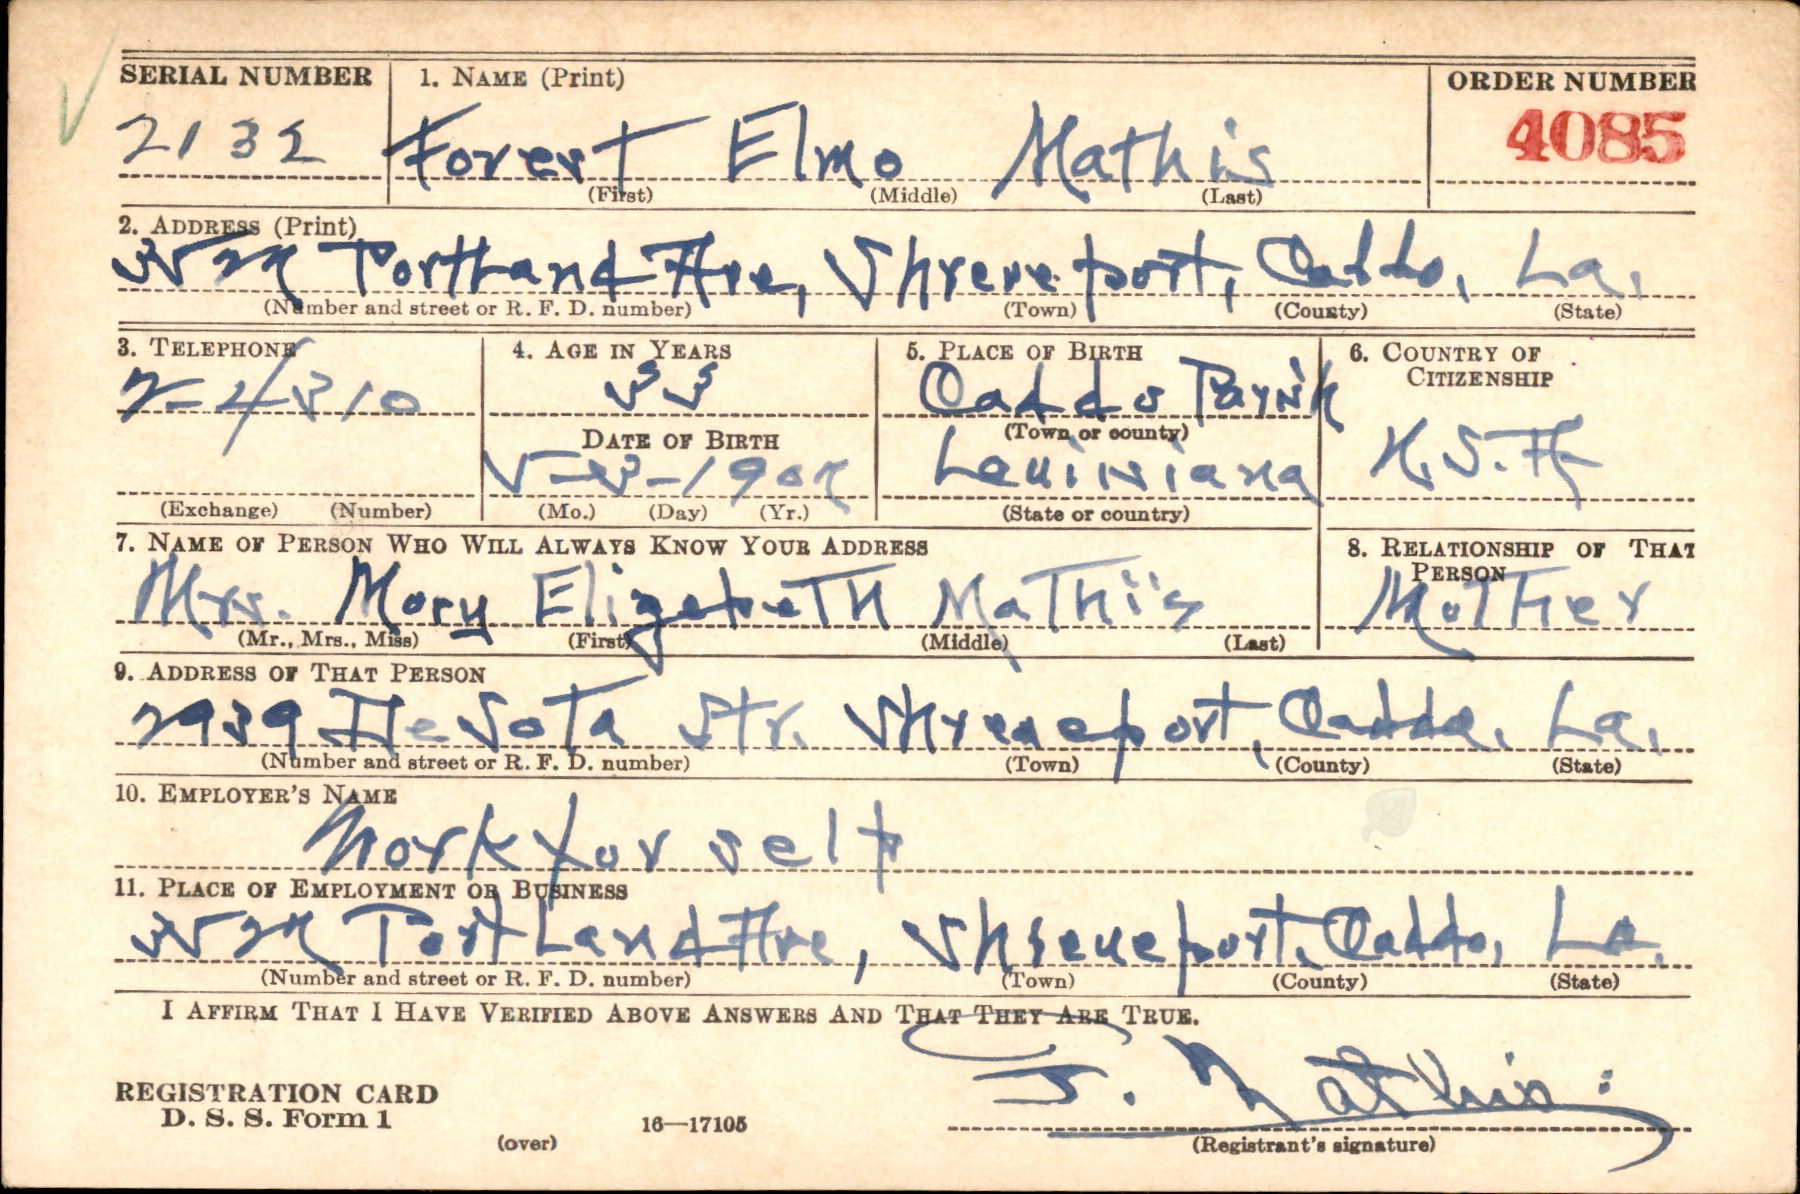 SERIAL NUMBER 1. NAME (Print) ORDER NUMBER
2132 Forest Elmo Mathis 4085
(First) (Middle) (Last)
2. ADDRESS (Print)
3527 Portland Ave, Shreveport, Caddo, La.
(Number and street or R. F. D. number) (Town) (County) (State)
3. TELEPHONE 4. AGE IN YEARS 5. PLACE OF BIRTH 6. COUNTRY OF
CITIZENSHIP
2-4310 33 Caddo Parish
DATE OF BIRTH (Town or county)
5-3-1907 Louisiana U.S.A
(Exchange) (Number) (Mo.) (Day) (Yr.) (State or country)
7. NAME OF PERSON WHO WILL ALWAYS KNOW YOUR ADDRESS 8. RELATIONSHIP OF THAT
PERSON
Mrs. Mary Elizabeth Mathis Mother
(Mr., Mrs., Miss) (First) (Middle) (Last)
9. ADDRESS OF THAT PERSON
2939 DeSota Str. Shreveport, Caddo, La.
(Number and street or R. F. D. number) (Town) (County) (State)
10. EMPLOYER'S NAME
Work for self
11. PLACE OF EMPLOYMENT OR BUSINESS
3527 Portland Ave, Shreveport, Caddo, La.
(Number and street or R. F. D. number) (Town) (County) (State)
I AFFIRM THAT I HAVE VERIFIED ABOVE ANSWERS AND THAT THEY ARE TRUE.
REGISTRATION CARD
D. S. S. Form 1
F. Mathis
(over) 16—17105 (Registrant's signature)